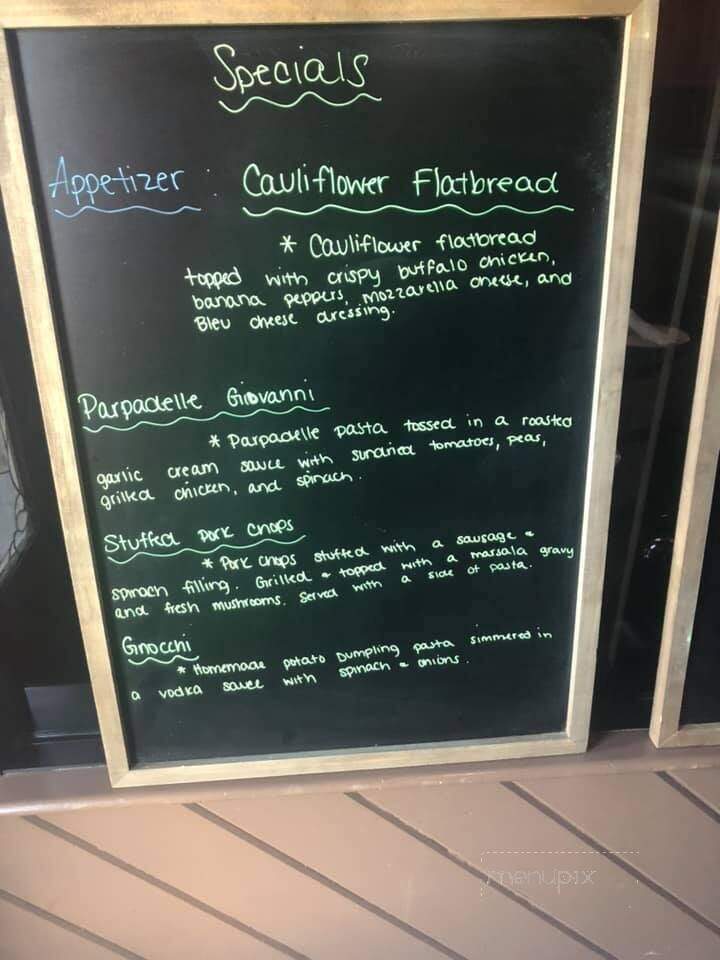 Specials
Appetizer : Cauliflower Flatbread
* Cauliflower flatbread
topped with crispy buffalo chicken,
banana peppers, mozzarella cheese, and
Bleu cheese dressing.
Parpadelle Giovanni
* Parpadelle pasta tossed in a roasted
garlic cream sauce with sundried tomatoes, peas,
grilled chicken, and spinach.
Stuffed Pork Chops
* Pork chops stuffed with a sausage +
spinach filling. Grilled + topped with a marsala gravy
and fresh mushrooms. Served with a side of pasta.
Gnocchi
* Homemade potato Dumpling pasta simmered in
a vodka sauce with spinach + onions.
menupix